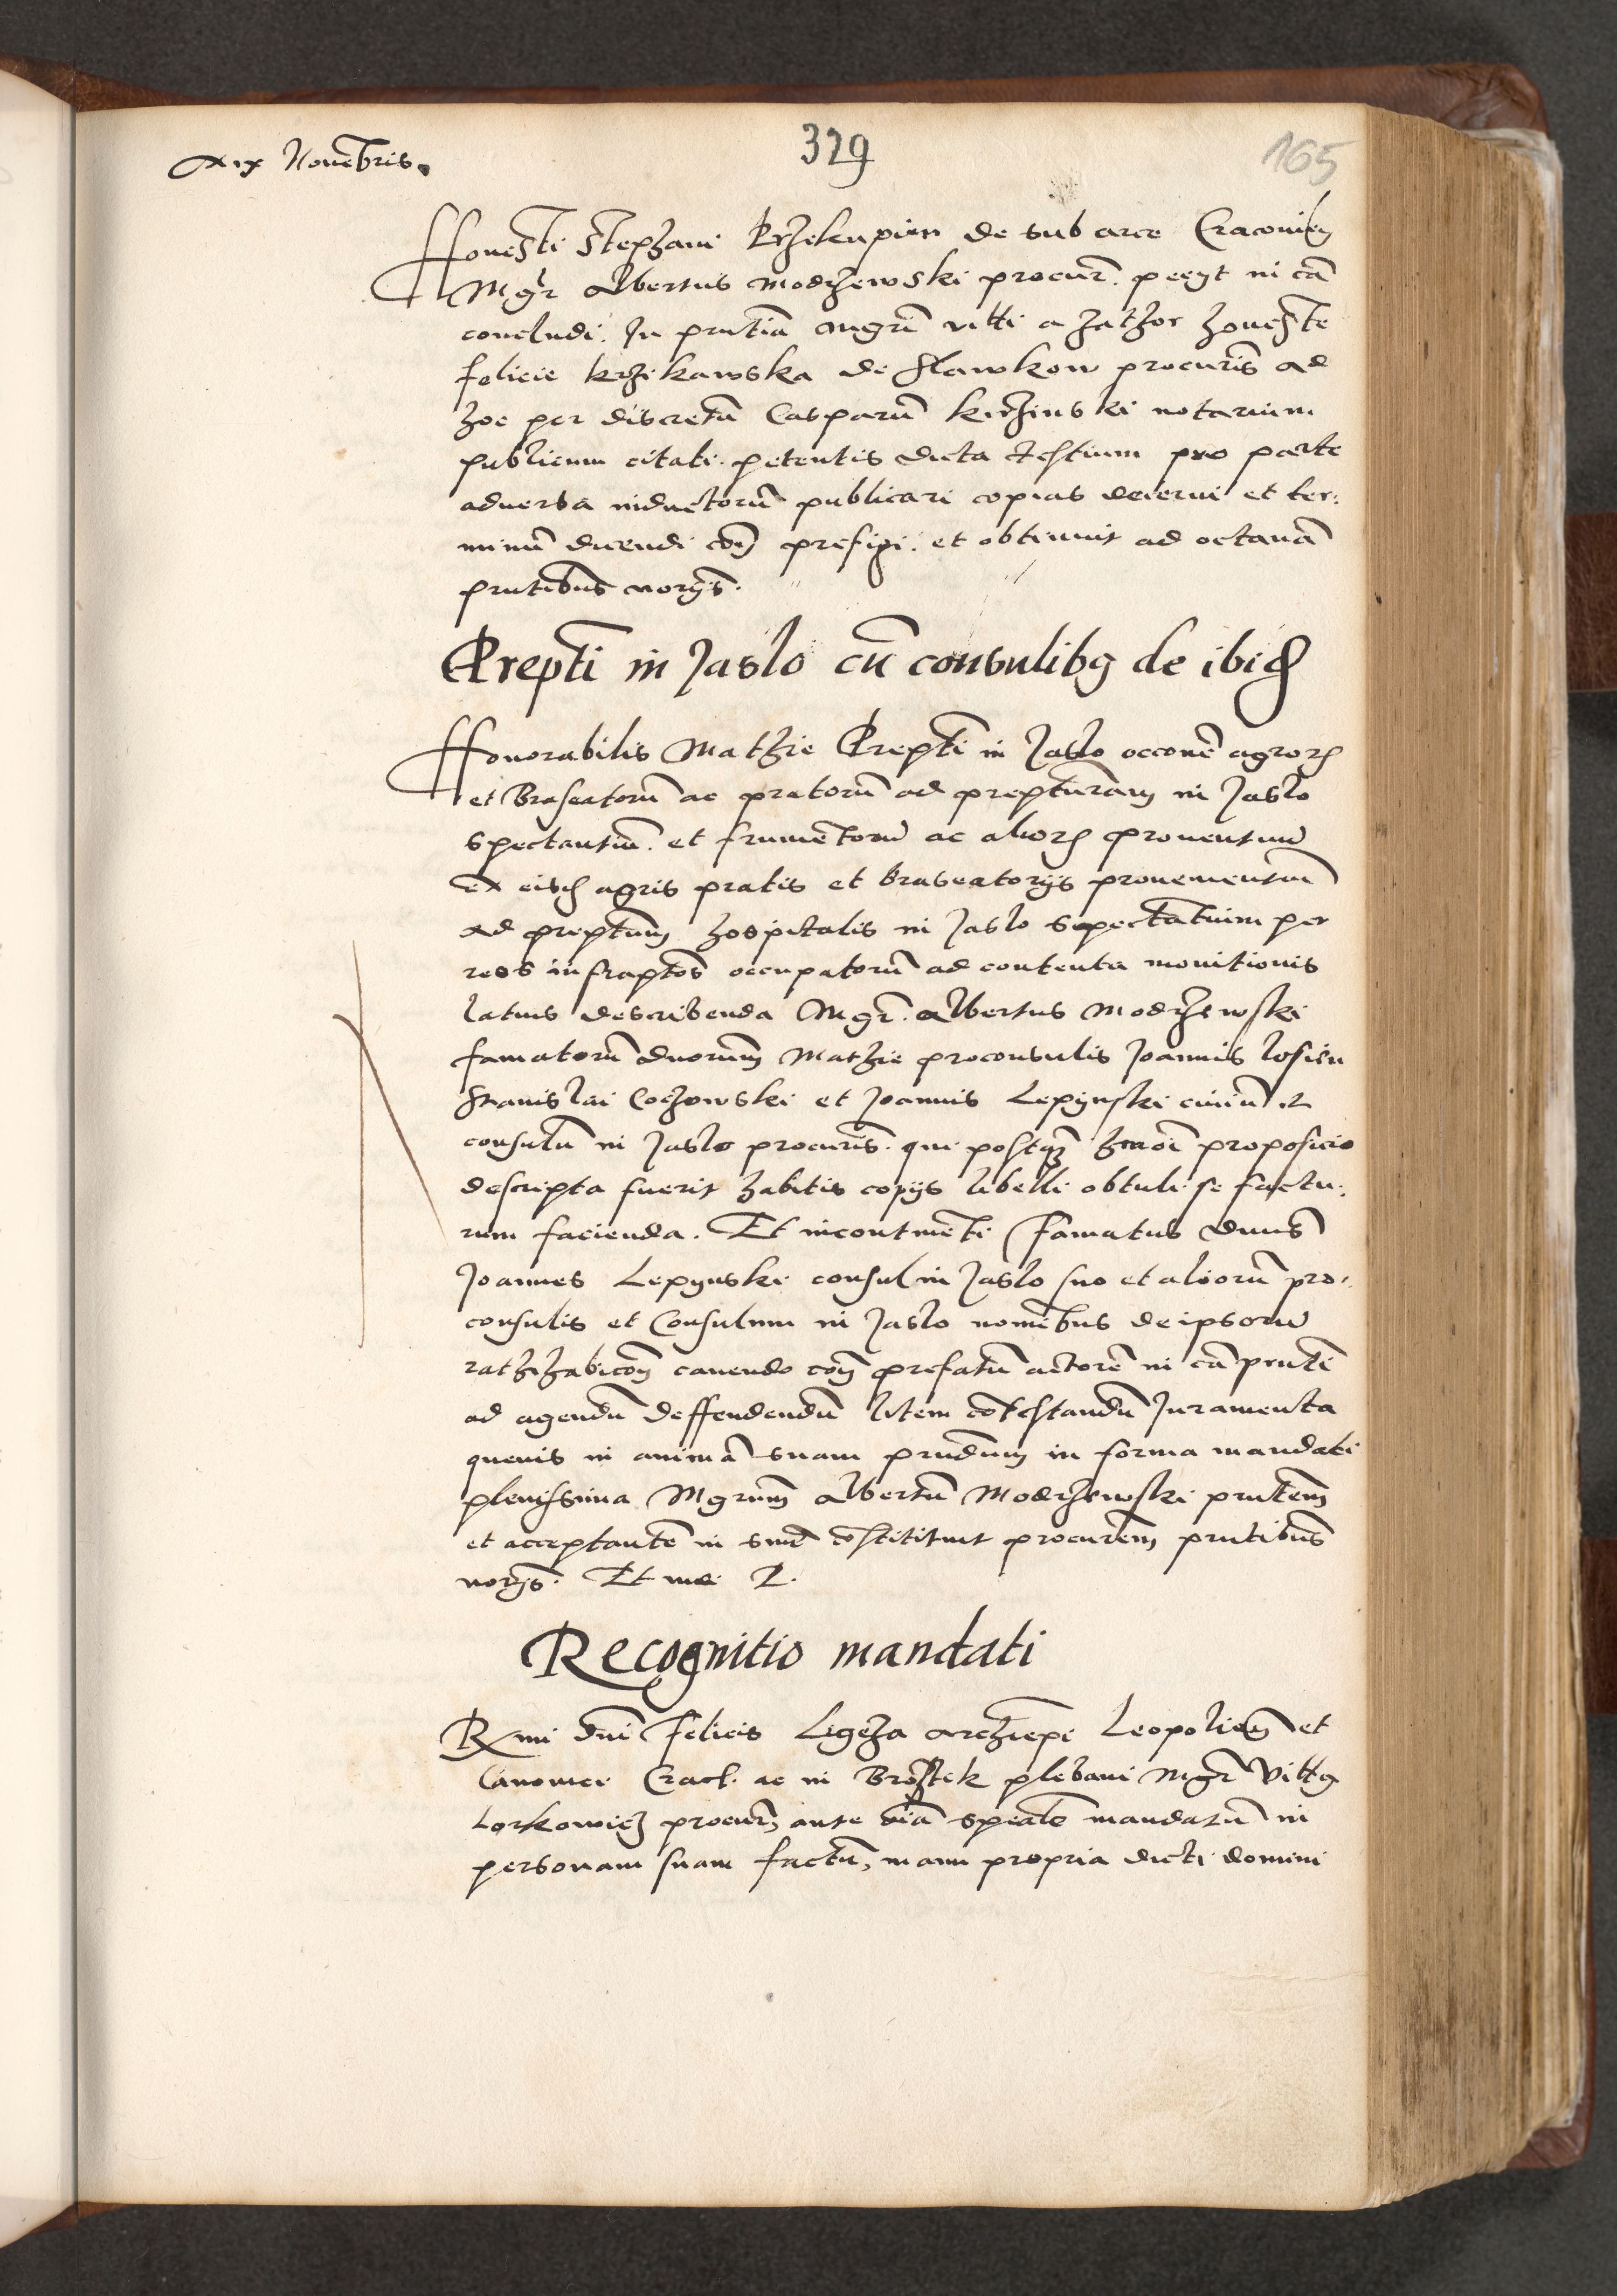 xix Nouēbris.
329
165
Honesti Stephani Przekupien de sub arce Cracovien
Mgr Albertus Modrzewski procur. petyt in cā
concludi. In pntia mgri vitti a hathor honeste
felicie krzikawska de Slawkow procuris ad
hoc per discretū Casparū kirzinski notarium
publicum citati. petentis dicta testium pro parte
adversa inductorū publicari copias decerni et ter:
minū dicendi con prefigi. et obtinuit ad octauā
pntibus norys.
Prepti in Jaslo cū consulibg de ibid
Honorabilis Mathie Prepti in Jaslo occone agror
et Braseatorū ac pratorū ad prepturam in Jaslo
spectantiū. et frumētorū ac alior prouentuū
ex eisd agris pratis et braseatorijs prouenientiū
ad preptum hospitalis in Jaslo sepectatium per
reos infraptos occupatorū ad contenta monitionis
latius describenda Mgr. Albertus Modrzewski
famatorū dnorum Mathie proconsulis Joannis losien
Stanislai Coczowski et Joannis Lepynski ciuiū et
consulū in Jaslo procuris. qui postqz hmoi proposicio
descripta fuerit habitis copijs libelli obtuli se factu:
rum facienda. Et incontinēti famatus dnus
Joannes Lepynski consul in Jaslo suo et aliorū pro:
consulis et Consulum in Jaslo nomībus de ipsorū
rathihabicoe cauendo con prefatū actorē in cā pnti
ad agendū deffendendū litem cōtestandū Juramenta
queuis in animā suam prndum in forma mandati
plenissima Mgrum Albertū Modrzewski pntem
et acceptantē in sūd cōstitituit procurem pntibus
norys. Et me P.
Recognitio mandati
Rmi dni felicis Ligeza archiepi Leopolien et
Canonici Crac. ac in Brostek plebani Mgr vittg
Lorkowicz procur, ante oīa speale mandatū in
personam suam factū, manu propria dicti domini